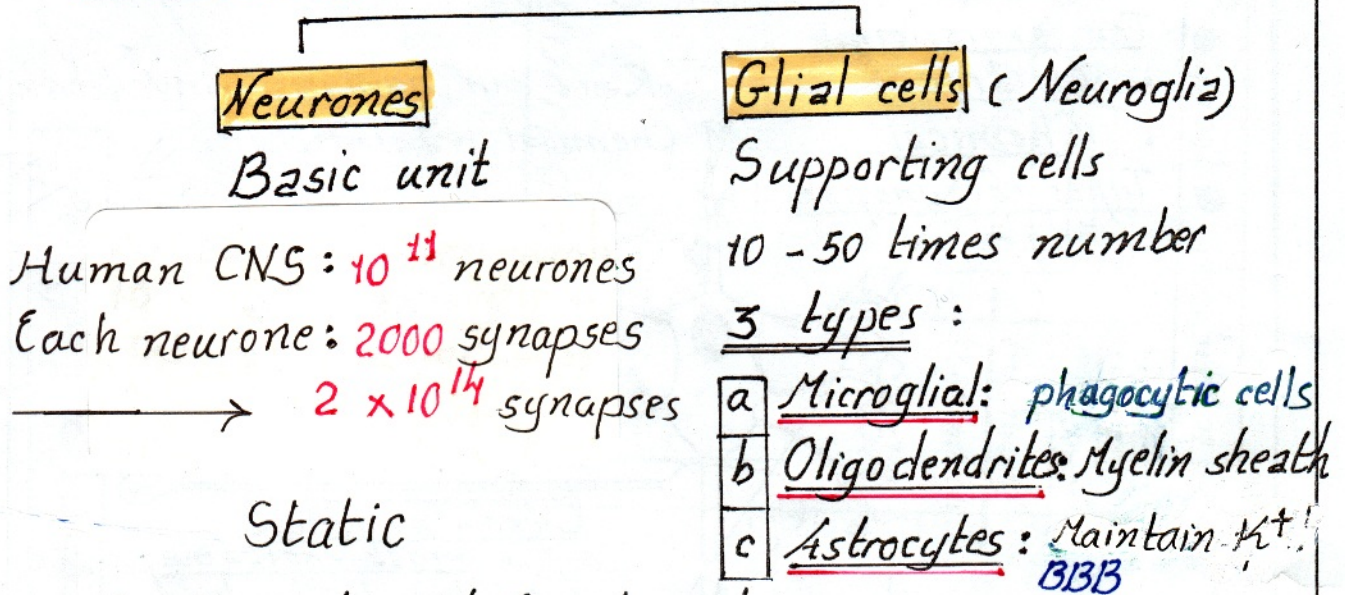 Neurones
Basic unit
Human CNS: 10¹¹ neurones
Each neurone: 2000 synapses
→ 2 x 10¹⁴ synapses
Static
Glial cells (Neuroglia)
Supporting cells
10 - 50 times number
3 types:
a Microglial: phagocytic cells
b Oligodendrites: Myelin sheath
c Astrocytes: Maintain K⁺
BBB